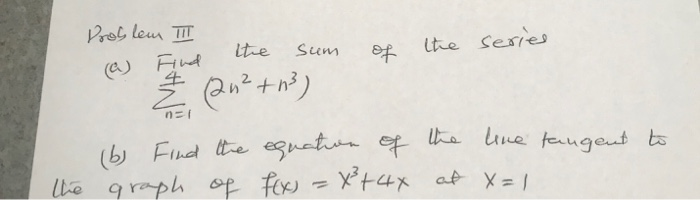 Problem III
(a) Find the sum of the series
4
∑ (2n² + n³)
n=1
(b) Find the equation of the line tangent to
the graph of f(x) = x³ + 4x at x = 1